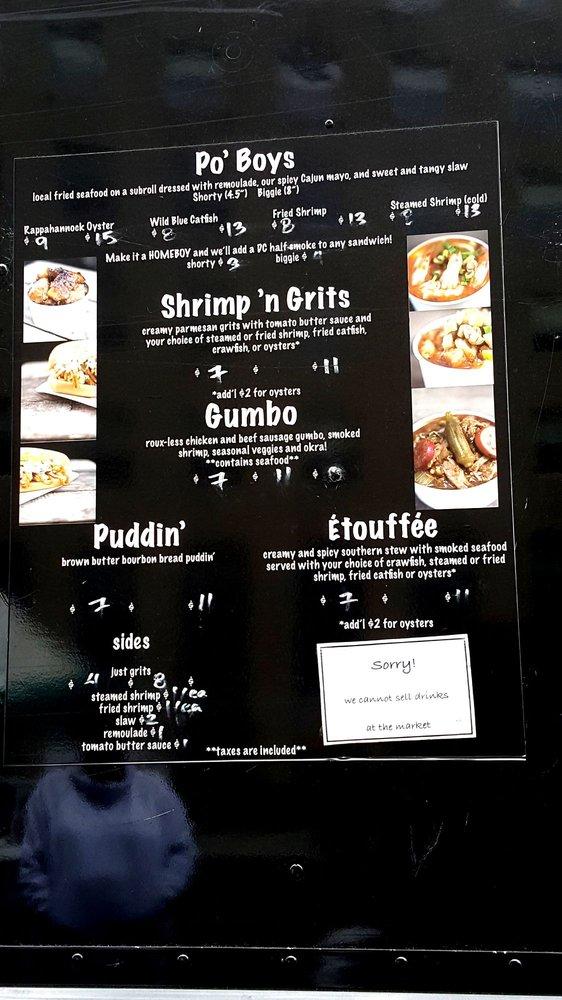 Po' Boys
local fried seafood on a subroll dressed with remoulade, our spicy Cajun mayo, and sweet and tangy slaw
Shorty (4.5") Biggie (8")
Rappahannock Oyster Wild Blue Catfish Fried Shrimp Steamed Shrimp (cold)
$9 $15 $8 $13 $8 $13 $8 $13
Make it a HOMEBOY and we'll add a DC half-smoke to any sandwich!
shorty $3 biggie $
Shrimp 'n Grits
creamy parmesan grits with tomato butter sauce and
your choice of steamed or fried shrimp, fried catfish,
crawfish, or oysters*
$7 $ $11
*add'l $2 for oysters
Gumbo
roux-less chicken and beef sausage gumbo, smoked
shrimp, seasonal veggies and okra!
**contains seafood**
$7 $11 $
Puddin'
brown butter bourbon bread puddin'
$7 $ $11
Étouffée
creamy and spicy southern stew with smoked seafood
served with your choice of crawfish, steamed or fried
shrimp, fried catfish or oysters*
$7 $ $11
*add'l $2 for oysters
sides
Just grits
$4 $8
steamed shrimp $1/ea
fried shrimp $1/ea
slaw $2
remoulade $1
tomato butter sauce $1
**taxes are included**
Sorry!
we cannot sell drinks
at the market